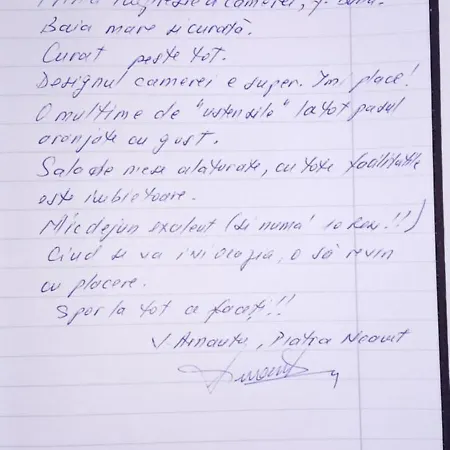 Prima impresie a camerei, f. bună.
Baia mare si curată.
Curat peste tot.
Designul camerei e super. Imi place!
O multime de "ustensile" la tot pasul
aranjate cu gust.
Sala de mese alaturate, cu tote facilitatile
este imbietoare.
Mic dejun excelent (si numai 10 Ron!!)
Când se va ivi ocazia, o să revin
cu placere.
Spor la tot ce faceți!!
V. Arnautu, Piatra Neamt